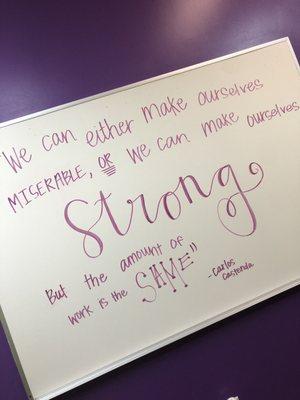 "We can either make ourselves
MISERABLE, OR we can make ourselves
strong
But the amount of
work is the SAME"
-Carlos
Castenda